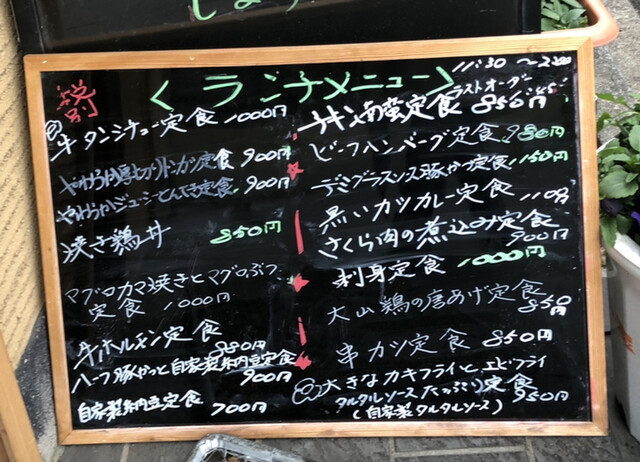 しま
特
<ランチメニュー>
11:30〜2:30
ラストオーダー
牛タンシチュー定食 1000円
やわらかジューシーとんてき定食 900円
焼き鶏丼 850円
マグロカマ焼きとマグロぶつ
定食 1000円
牛ホルモン定食
880円
ハーフ豚かつと自家製納豆定食
900円
自家製納豆定食 700円
チキン南蛮定食 850円
ビーフハンバーグ定食 980円
デミグラスソース豚かつ定食 1150円
黒いカツカレー定食 1100
さくら肉の煮込み定食
900円
刺身定食 1000円
大山鶏の唐あげ定食
850
串カツ定食 850円
大きなカキフライとエビフライ
タルタルソースたっぷり定食
950円
(自家製タルタルソース)